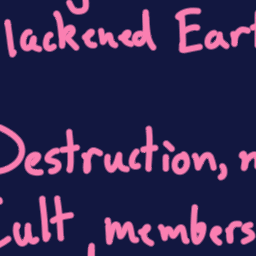 lackened Eart
Destruction, n
Cult members